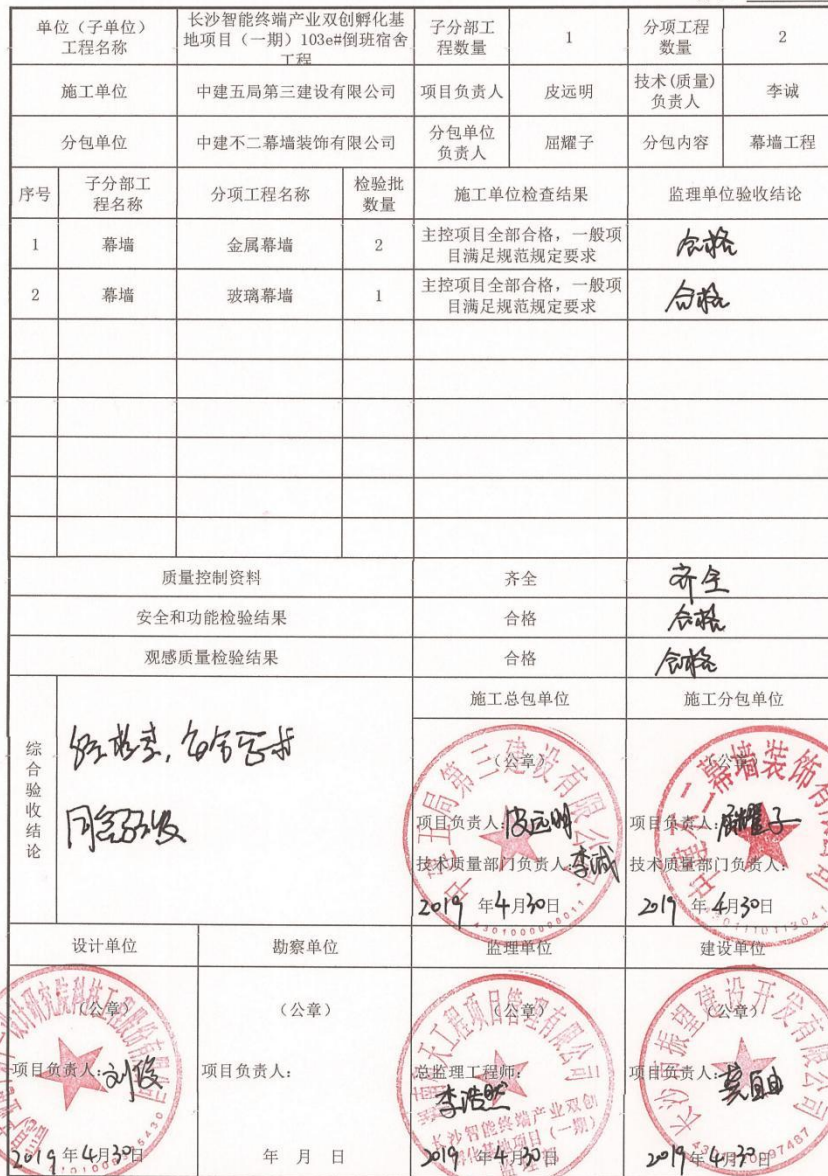 单位（子单位）
工程名称
长沙智能终端产业双创孵化基
地项目（一期）103e#倒班宿舍
工程
子分部工
程数量
1
分项工程
数量
2
施工单位
中建五局第三建设有限公司
项目负责人
皮远明
技术(质量)
负责人
李诚
分包单位
中建不二幕墙装饰有限公司
分包单位
负责人
屈耀子
分包内容
幕墙工程
序号
子分部工
程名称
分项工程名称
检验批
数量
施工单位检查结果
监理单位验收结论
1
幕墙
金属幕墙
2
主控项目全部合格，一般项
目满足规范规定要求
合格
2
幕墙
玻璃幕墙
1
主控项目全部合格，一般项
目满足规范规定要求
合格
质量控制资料
齐全
齐全
安全和功能检验结果
合格
合格
观感质量检验结果
合格
合格
综合验收结论
同意验收
施工总包单位
（公章）
中建五局第三建设有限公司
项目负责人：皮远明
技术质量部门负责人：李诚
2019 年 4 月 30 日
施工分包单位
（公章）
项目负责人：屈耀子
技术质量部门负责人：
2019 年 4 月 30 日
设计单位
（公章）
项目负责人：刘俊
2019 年 4 月 30 日
勘察单位
（公章）
项目负责人：
年 月 日
监理单位
总监理工程师：
李浩然
长沙智能终端产业双创
孵化基地项目（一期）
监理部
2019 年 4 月 30 日
建设单位
（公章）
长沙市振望建设开发有限公司
项目负责人：
2019 年 4 月 30 日